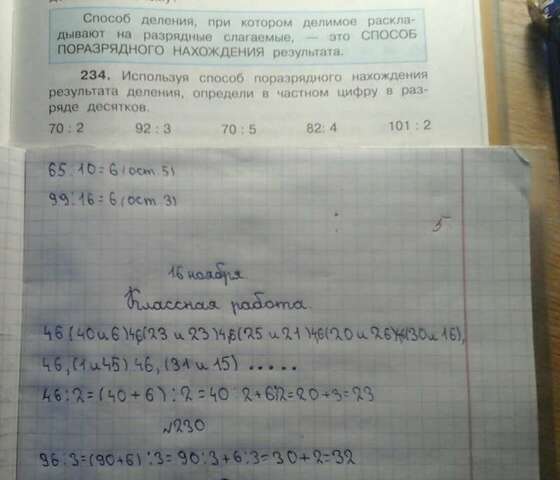 Способ деления, при котором делимое раскла-
дывают на разрядные слагаемые, — это СПОСОБ
ПОРАЗРЯДНОГО НАХОЖДЕНИЯ результата.
234. Используя способ поразрядного нахождения
результата деления, определи в частном цифру в раз-
ряде десятков.
70 : 2 92 : 3 70 : 5 82: 4 101 : 2
65:10=6(ост.5)
99:16=6(ост.3)
5
16 ноября
Классная работа.
46(40и6)46(23 и 23)46(25 и 21)46(20 и 26)46(30и 16),
46,(1и45) 46,(31 и 15) .....
46:2=(40+6):2=40:2+6:2=20+3=23
№230
96:3=(90+6):3=90:3+6:3=30+2=32